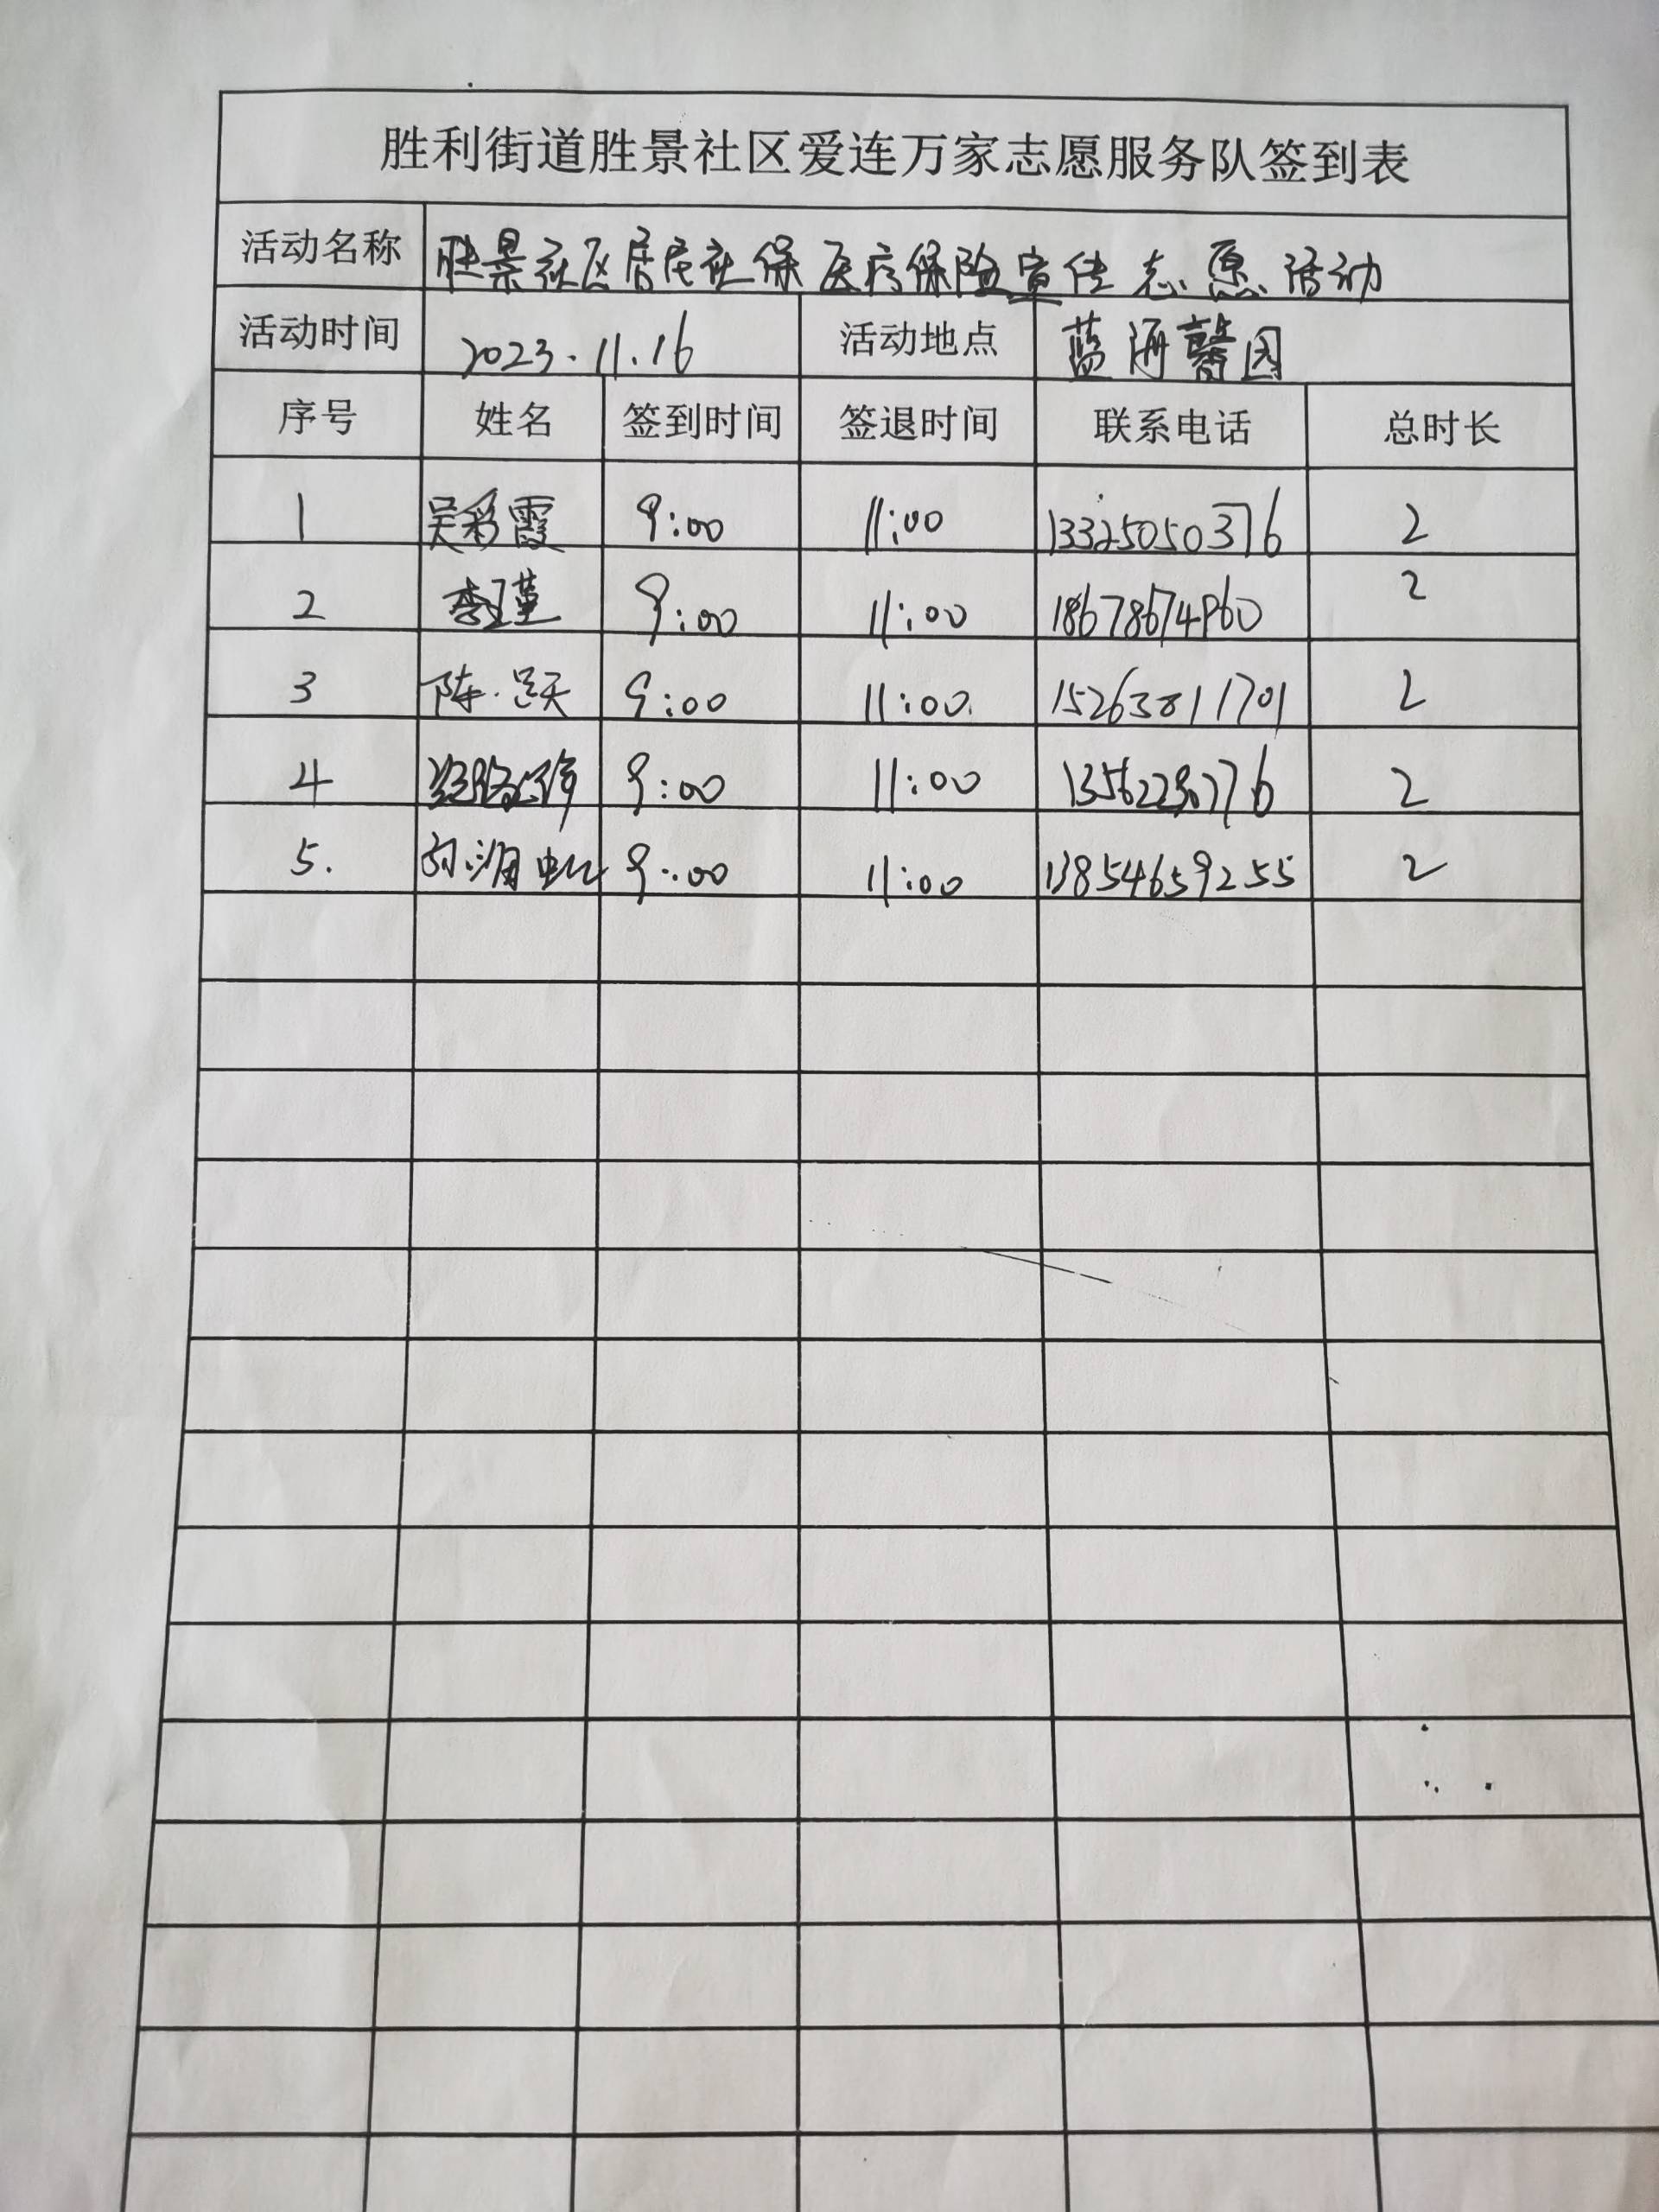 胜利街道胜景社区爱连万家志愿服务队签到表
活动名称 胜景社区居民社保医疗保险宣传志愿活动
活动时间 2023.11.16 活动地点 蓝海馨园
序号 姓名 签到时间 签退时间 联系电话 总时长
1 吴彩霞 9:00 11:00 13325050376 2
2 李瑾 9:00 11:00 18678674960 2
3 陈 9:00 11:00 15263811701 2
4 9:00 11:00 2
5. 9:00 11:00 13854659255 2